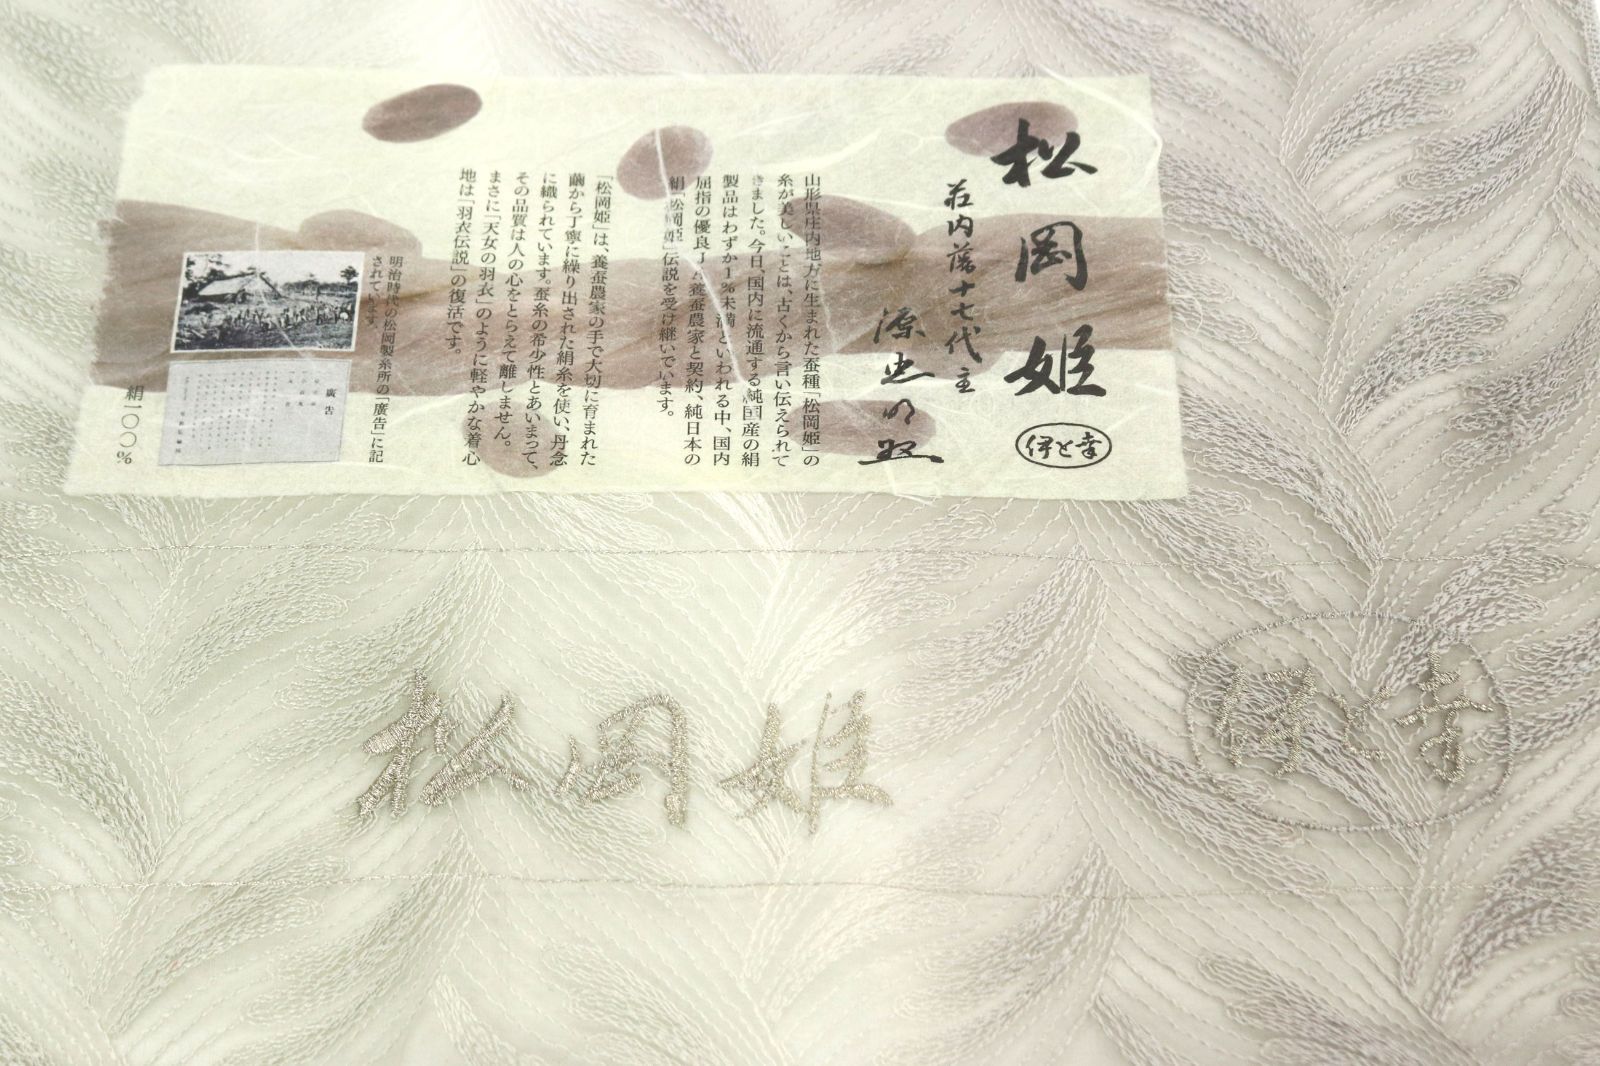 松岡姫
伊と幸
荘内藩十七代主
源忠明
山形県庄内地方に生まれた蚕種「松岡姫」の
糸が美しいことは、古くから言い伝えられて
きました。今日、国内に流通する純国産の絹
製品はわずか1%未満といわれる中、国内
屈指の優良な養蚕農家と契約、純日本の
絹「松岡姫」伝説を受け継いでいます。
「松岡姫」は、養蚕農家の手で大切に育まれた
繭から丁寧に繰り出された絹糸を使い、丹念
に織られています。蚕糸の希少性とあいまって、
その品質は人の心をとらえて離しません。
まさに「天女の羽衣」のように軽やかな着心
地は「羽衣伝説」の復活です。
明治時代の松岡製糸所の「廣告」に記
されています。
廣告
絹一〇〇%
松岡姫
伊と幸